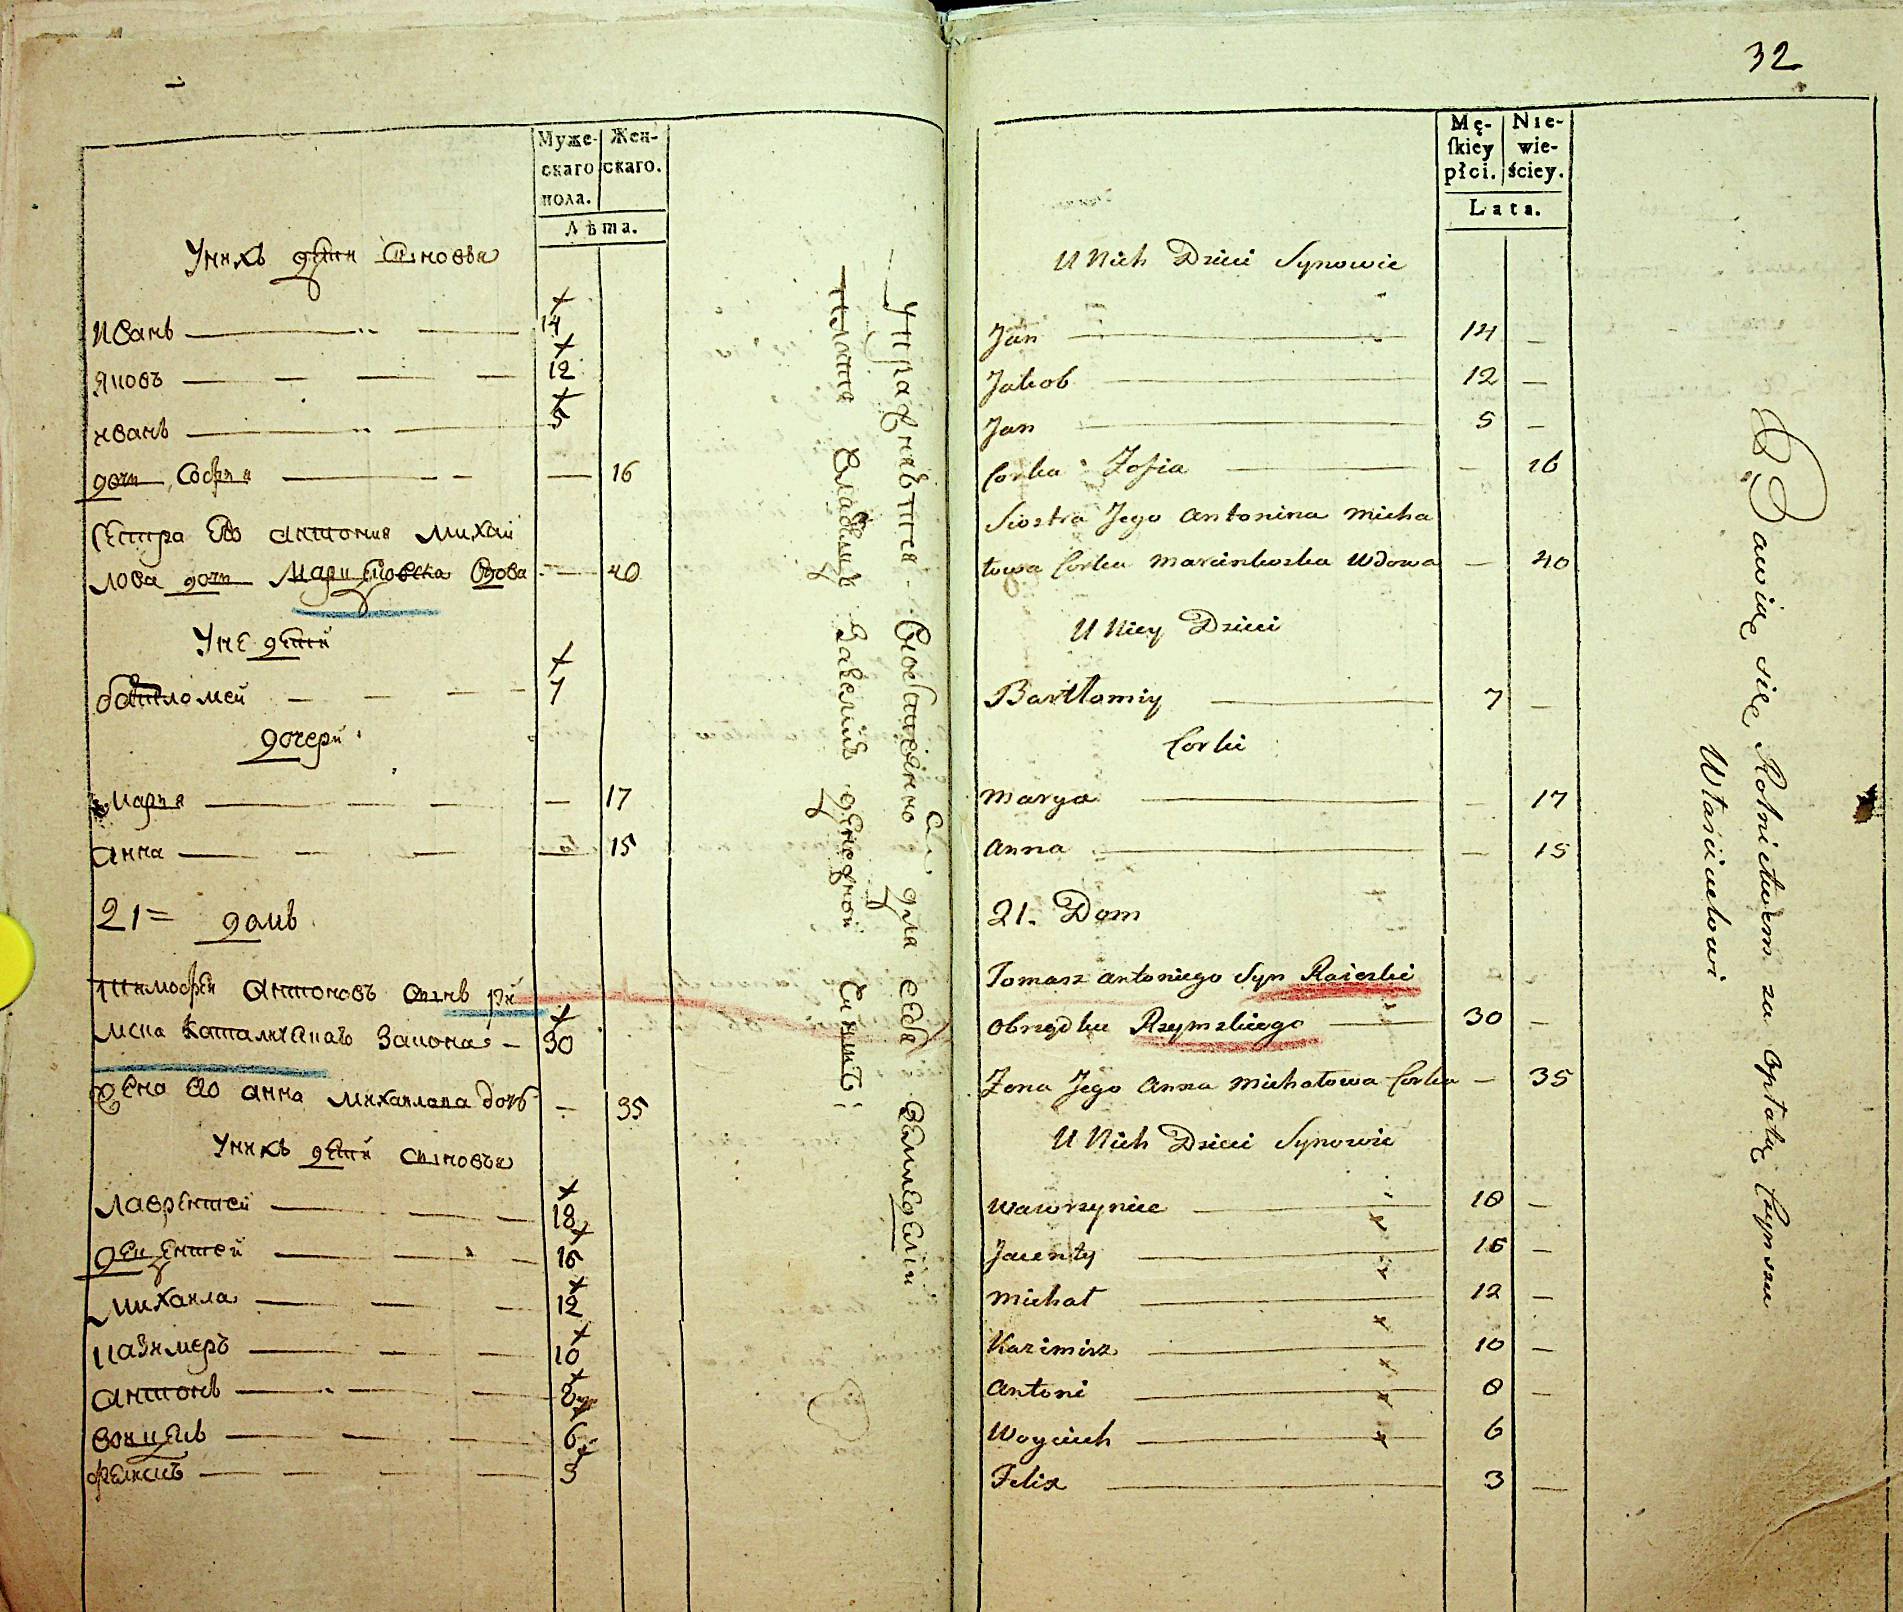 Муже-
скаго
пола.
Жен-
скаго.
Лѣта.
Унихъ дѣти Сыновья
Иванъ 14
Яковъ 12
иванъ 5
дочь Софья — 16
Сестра Его антония михай
лова дочь Марцѣновска Вдова — 40
Уне дѣтй
батломей 7
дочери
марья — 17
анна — 15
21= домъ
тимофей антоновъ сынъ ри
мско католическаго закона 30
Жена его анна михаилова дочь — 35
Унихъ дѣти сыновья
лаврентей 18
яцентей 16
михаила 12
казимеръ 10
антонъ 8
войцехъ 6
фѣликсъ 3
для себя земледелія
32
Mę-
ſkiey
płci.
Nie-
wie-
ściey.
Lata.
U Nich Dzieci Synowie
Jan 14 —
Jakob 12 —
Jan 5 —
Corka Zofia — 16
Siostra Jego antonina micha
łowa Corka marcinkoska Wdowa — 40
U Niey Dzieci
Bartłomiy 7 —
Corki
marya — 17
anna — 15
21. Dom
Tomasz antoniego Syn Raieski
obrządku Rzymskiego 30 —
Zona Jego anna michałowa Corka — 35
U Nich Dzieci Synowie
wawrzyniec 18 —
Jacenty 16 —
michał 12 —
Kazimirz 10 —
antoni 8 —
Woyciech 6
Felix 3 —
Bawią się Rolnictwem za opłatą Czynszu
Właścicielowi